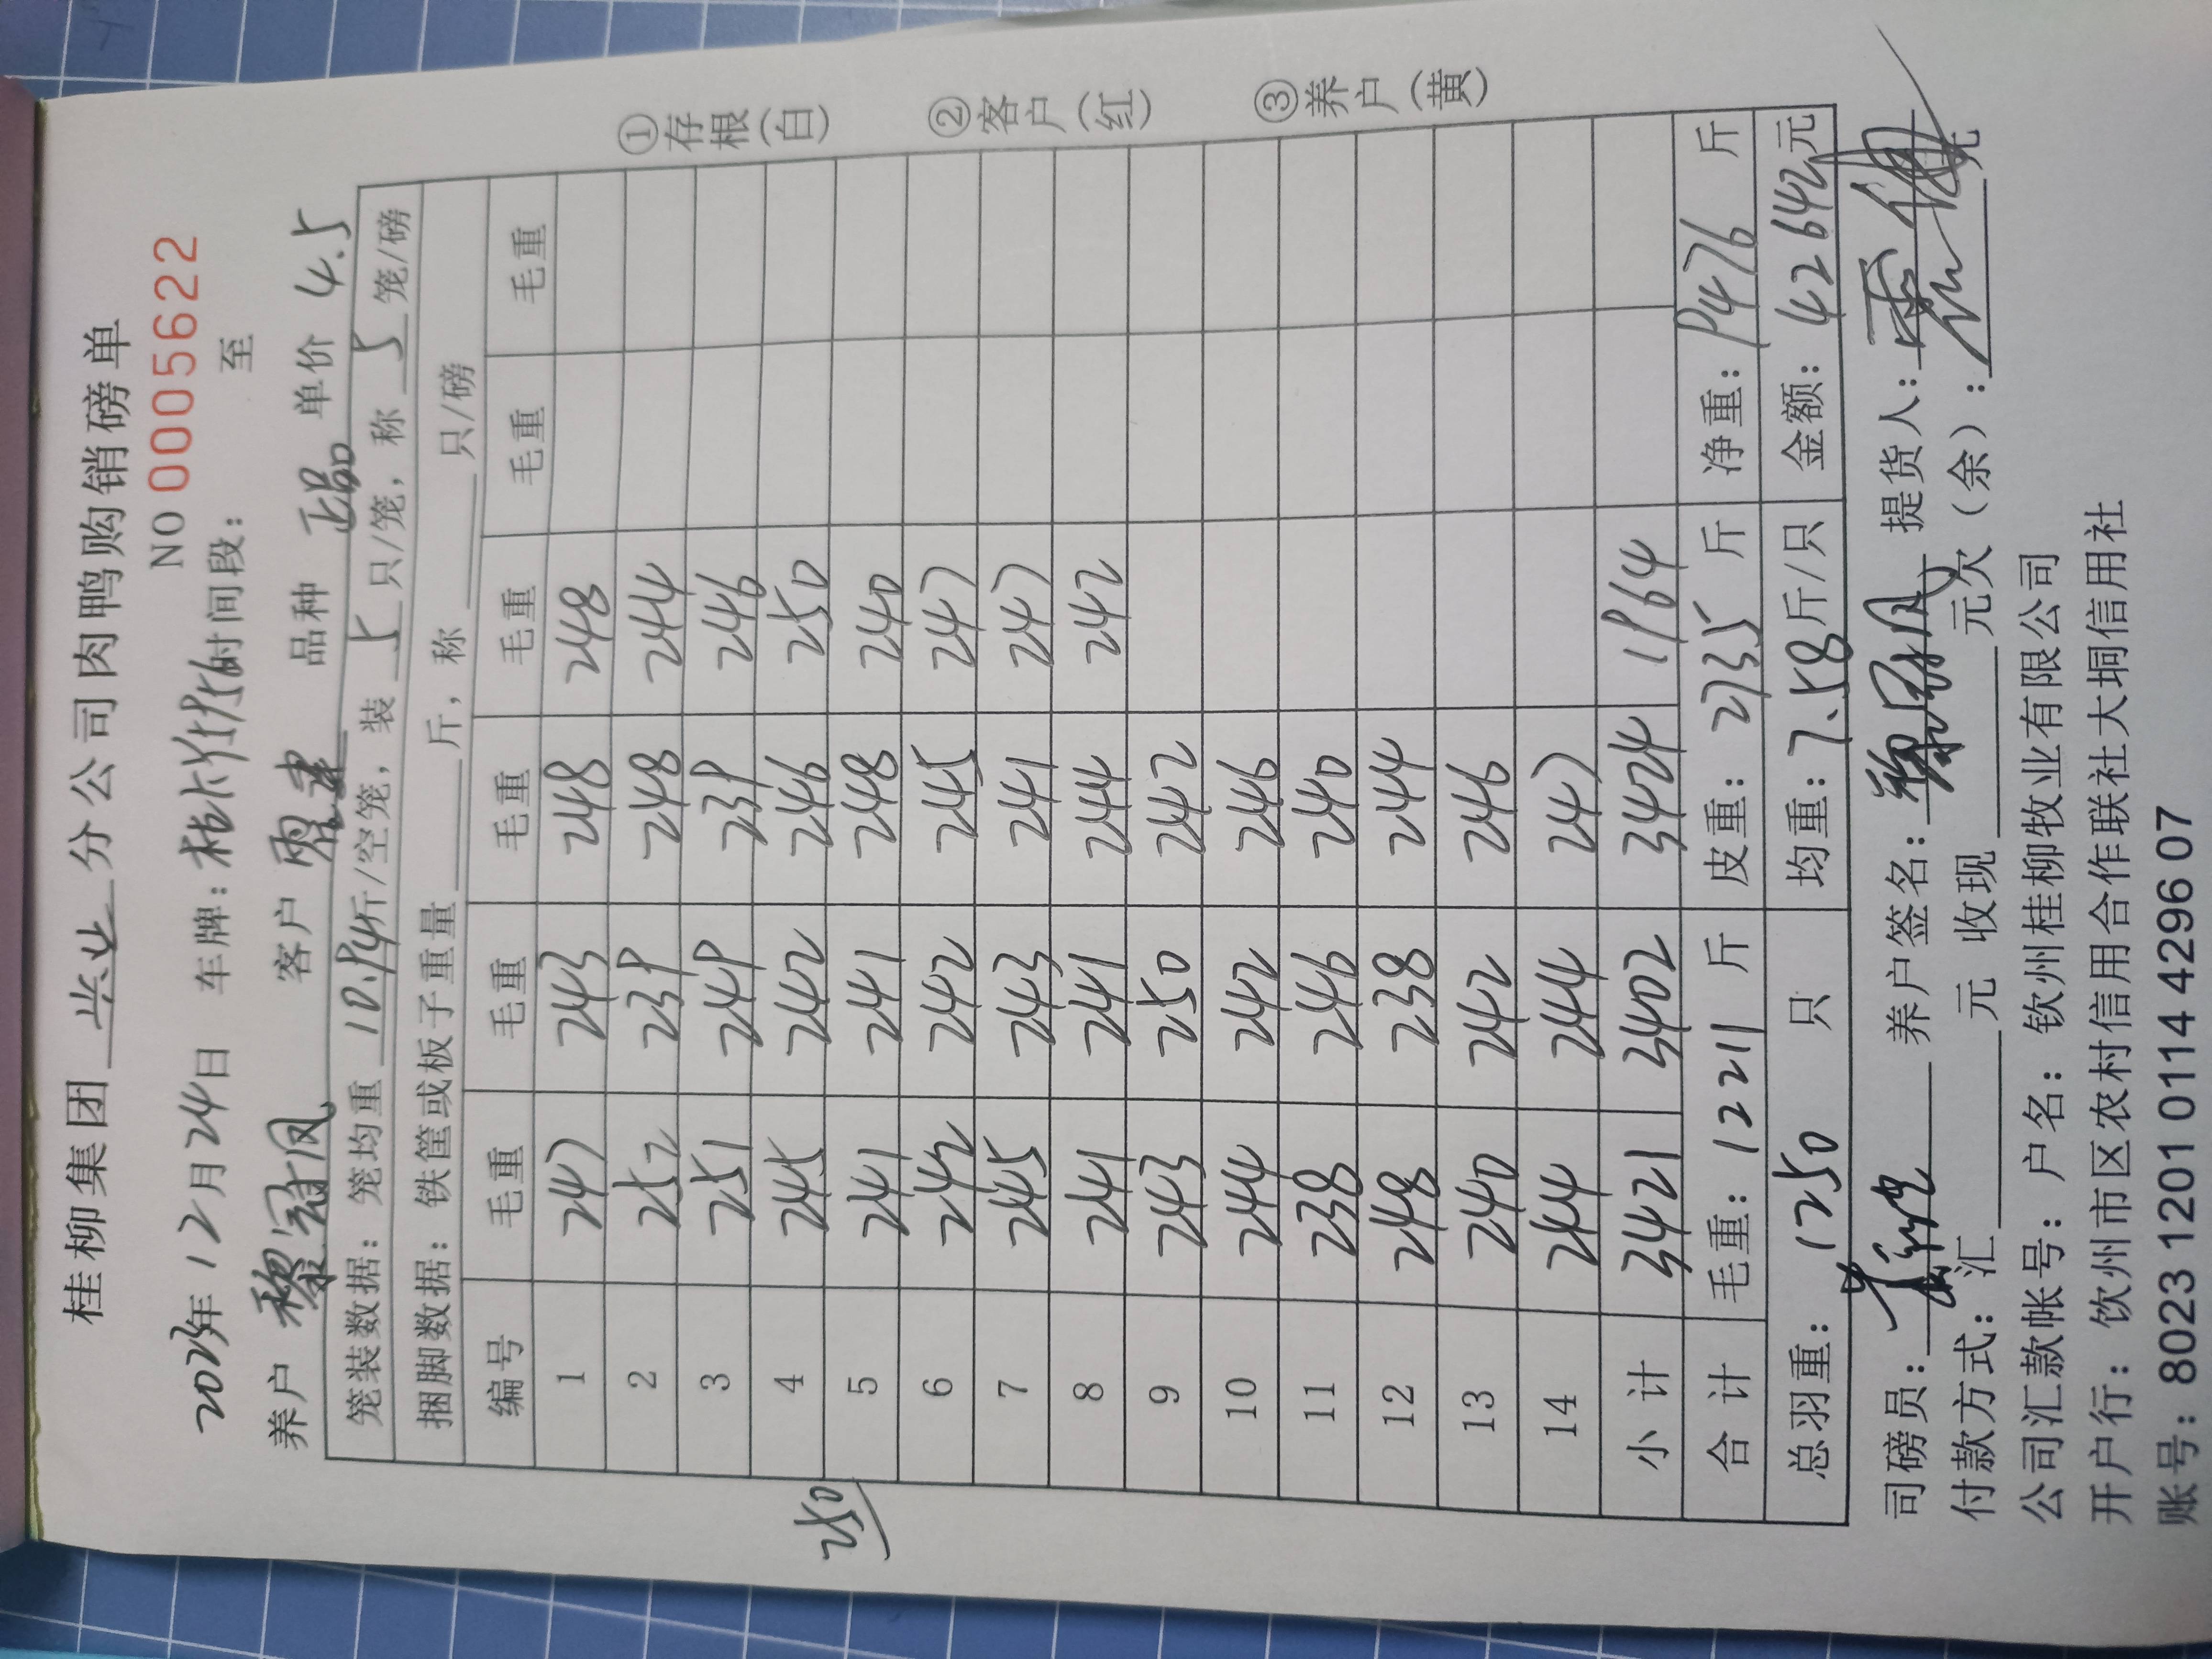 桂柳集团 分公司肉鸭购销磅单
NO 0005622
年 12月24日 车牌： 时间段： 至
养户 黎冠凤 客户 品种 正品 单价 4.5
笼装数据：笼均重 10.94斤/空笼，装 5 只/笼，称 5 笼/磅
捆脚数据：铁筐或板子重量 斤，称 只/磅
编号 毛重 毛重 毛重 毛重 毛重 毛重
1 247 243 248 248
2 252 239 248 244
3 251 249 239 246
4 245 242 246 250
5 241 241 248 240
6 242 242 245 247
7 245 243 241 247
8 241 241 244 242
9 243 250 242
10 244 242 246
11 238 246 240
12 248 238 244
13 240 242 246
14 244 244 247
小计 3421 3402 3424 1964
合计 毛重：12211 斤 皮重：2735 斤 净重：9476 斤
总羽重：1250 只 均重：7.58斤/只 金额：42642元
250
司磅员： 养户签名： 提货人：
付款方式：汇 元 收现 元欠（余）： 元
公司汇款帐号：户名：钦州桂柳牧业有限公司
开户行：饮州市区农村信用合作联社大垌信用社
账号：8023 1201 0114 4296 07
①存根(白)
②客户(红)
③养户(黄)